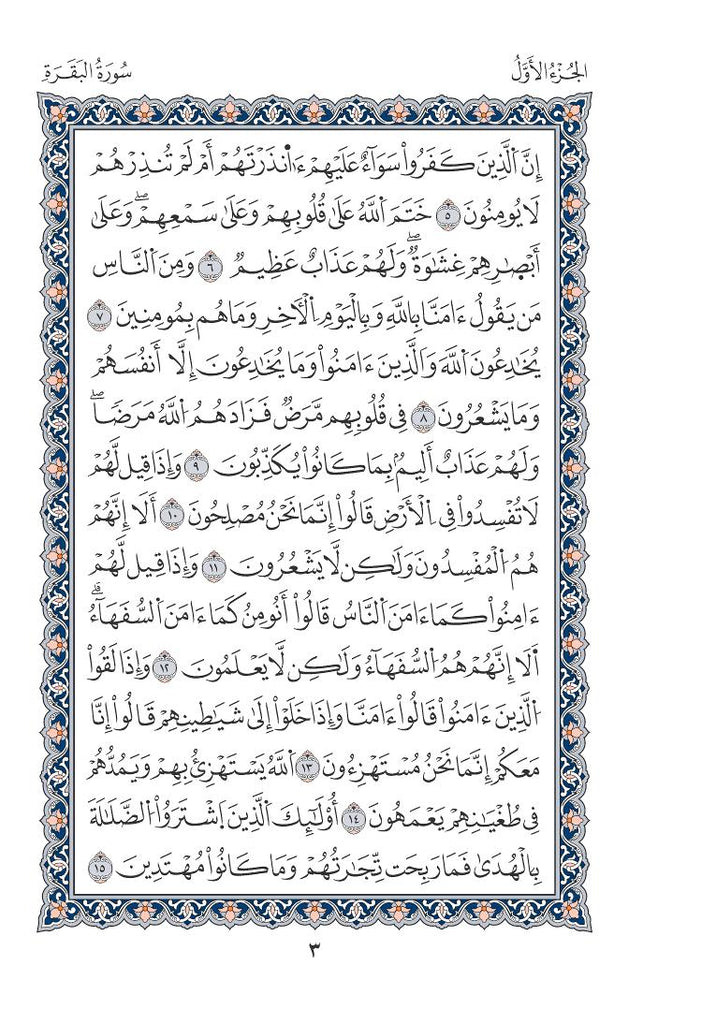 الجُزْءُ الأَوَّلُ
سُورَةُ البَقَرَةِ
إِنَّ ٱلَّذِينَ كَفَرُواْ سَوَآءٌ عَلَيْهِمْ ءَا۬نذَرْتَهُمْ أَمْ لَمْ تُنذِرْهُمْ
لَا يُومِنُونَ ٥ خَتَمَ ٱللَّهُ عَلَىٰ قُلُوبِهِمْ وَعَلَىٰ سَمْعِهِمْۖ وَعَلَىٰ
أَبْصٰ۪رِهِمْ غِشَٰوَةٌۖ وَلَهُمْ عَذَابٌ عَظِيمٌ ٦ وَمِنَ ٱلنَّاسِ
مَن يَقُولُ ءَامَنَّا بِاللَّهِ وَبِالْيَوْمِ ٱلْأٓخِرِ وَمَا هُم بِمُومِنِينَ ٧
يُخَٰدِعُونَ ٱللَّهَ وَٱلَّذِينَ ءَامَنُواْ وَمَا يُخَٰدِعُونَ إِلَّا أَنفُسَهُمْ
وَمَا يَشْعُرُونَ ٨ فِي قُلُوبِهِم مَّرَضٌ فَزَادَهُمُ ٱللَّهُ مَرَضًاۖ
وَلَهُمْ عَذَابٌ أَلِيمُۢ بِمَا كَانُواْ يُكَذِّبُونَ ٩ وَإِذَا قِيل لَّهُمْ
لَا تُفْسِدُواْ فِي ٱلْأَرْضِ قَالُواْ إِنَّمَا نَحْنُ مُصْلِحُونَ ١٠ أَلَا إِنَّهُمْ
هُمُ ٱلْمُفْسِدُونَ وَلَٰكِن لَّا يَشْعُرُونَ ١١ وَإِذَا قِيل لَّهُمْ
ءَامِنُواْ كَمَا ءَامَنَ ٱلنَّاسُ قَالُواْ أَنُومِنُ كَمَا ءَامَنَ ٱلسُّفَهَآءُۗ
أَلَا إِنَّهُمْ هُمُ ٱلسُّفَهَآءُ وَلَٰكِن لَّا يَعْلَمُونَ ١٢ وَإِذَا لَقُواْ
ٱلَّذِينَ ءَامَنُواْ قَالُواْ ءَامَنَّا وَإِذَا خَلَوْاْ إِلَىٰ شَيَٰطِينِهِمْ قَالُواْ إِنَّا
مَعَكُمْ إِنَّمَا نَحْنُ مُسْتَهْزِءُونَ ١٣ ٱللَّهُ يَسْتَهْزِئُ بِهِمْ وَيَمُدُّهُمْ
فِي طُغْيَٰنِهِمْ يَعْمَهُونَ ١٤ أُوْلَٰٓئِكَ ٱلَّذِينَ ٱشْتَرَوُاْ ٱلضَّلَٰلَةَ
بِالْهُدَىٰ فَمَا رَبِحَت تِّجَٰرَتُهُمْ وَمَا كَانُواْ مُهْتَدِينَ ١٥
٣